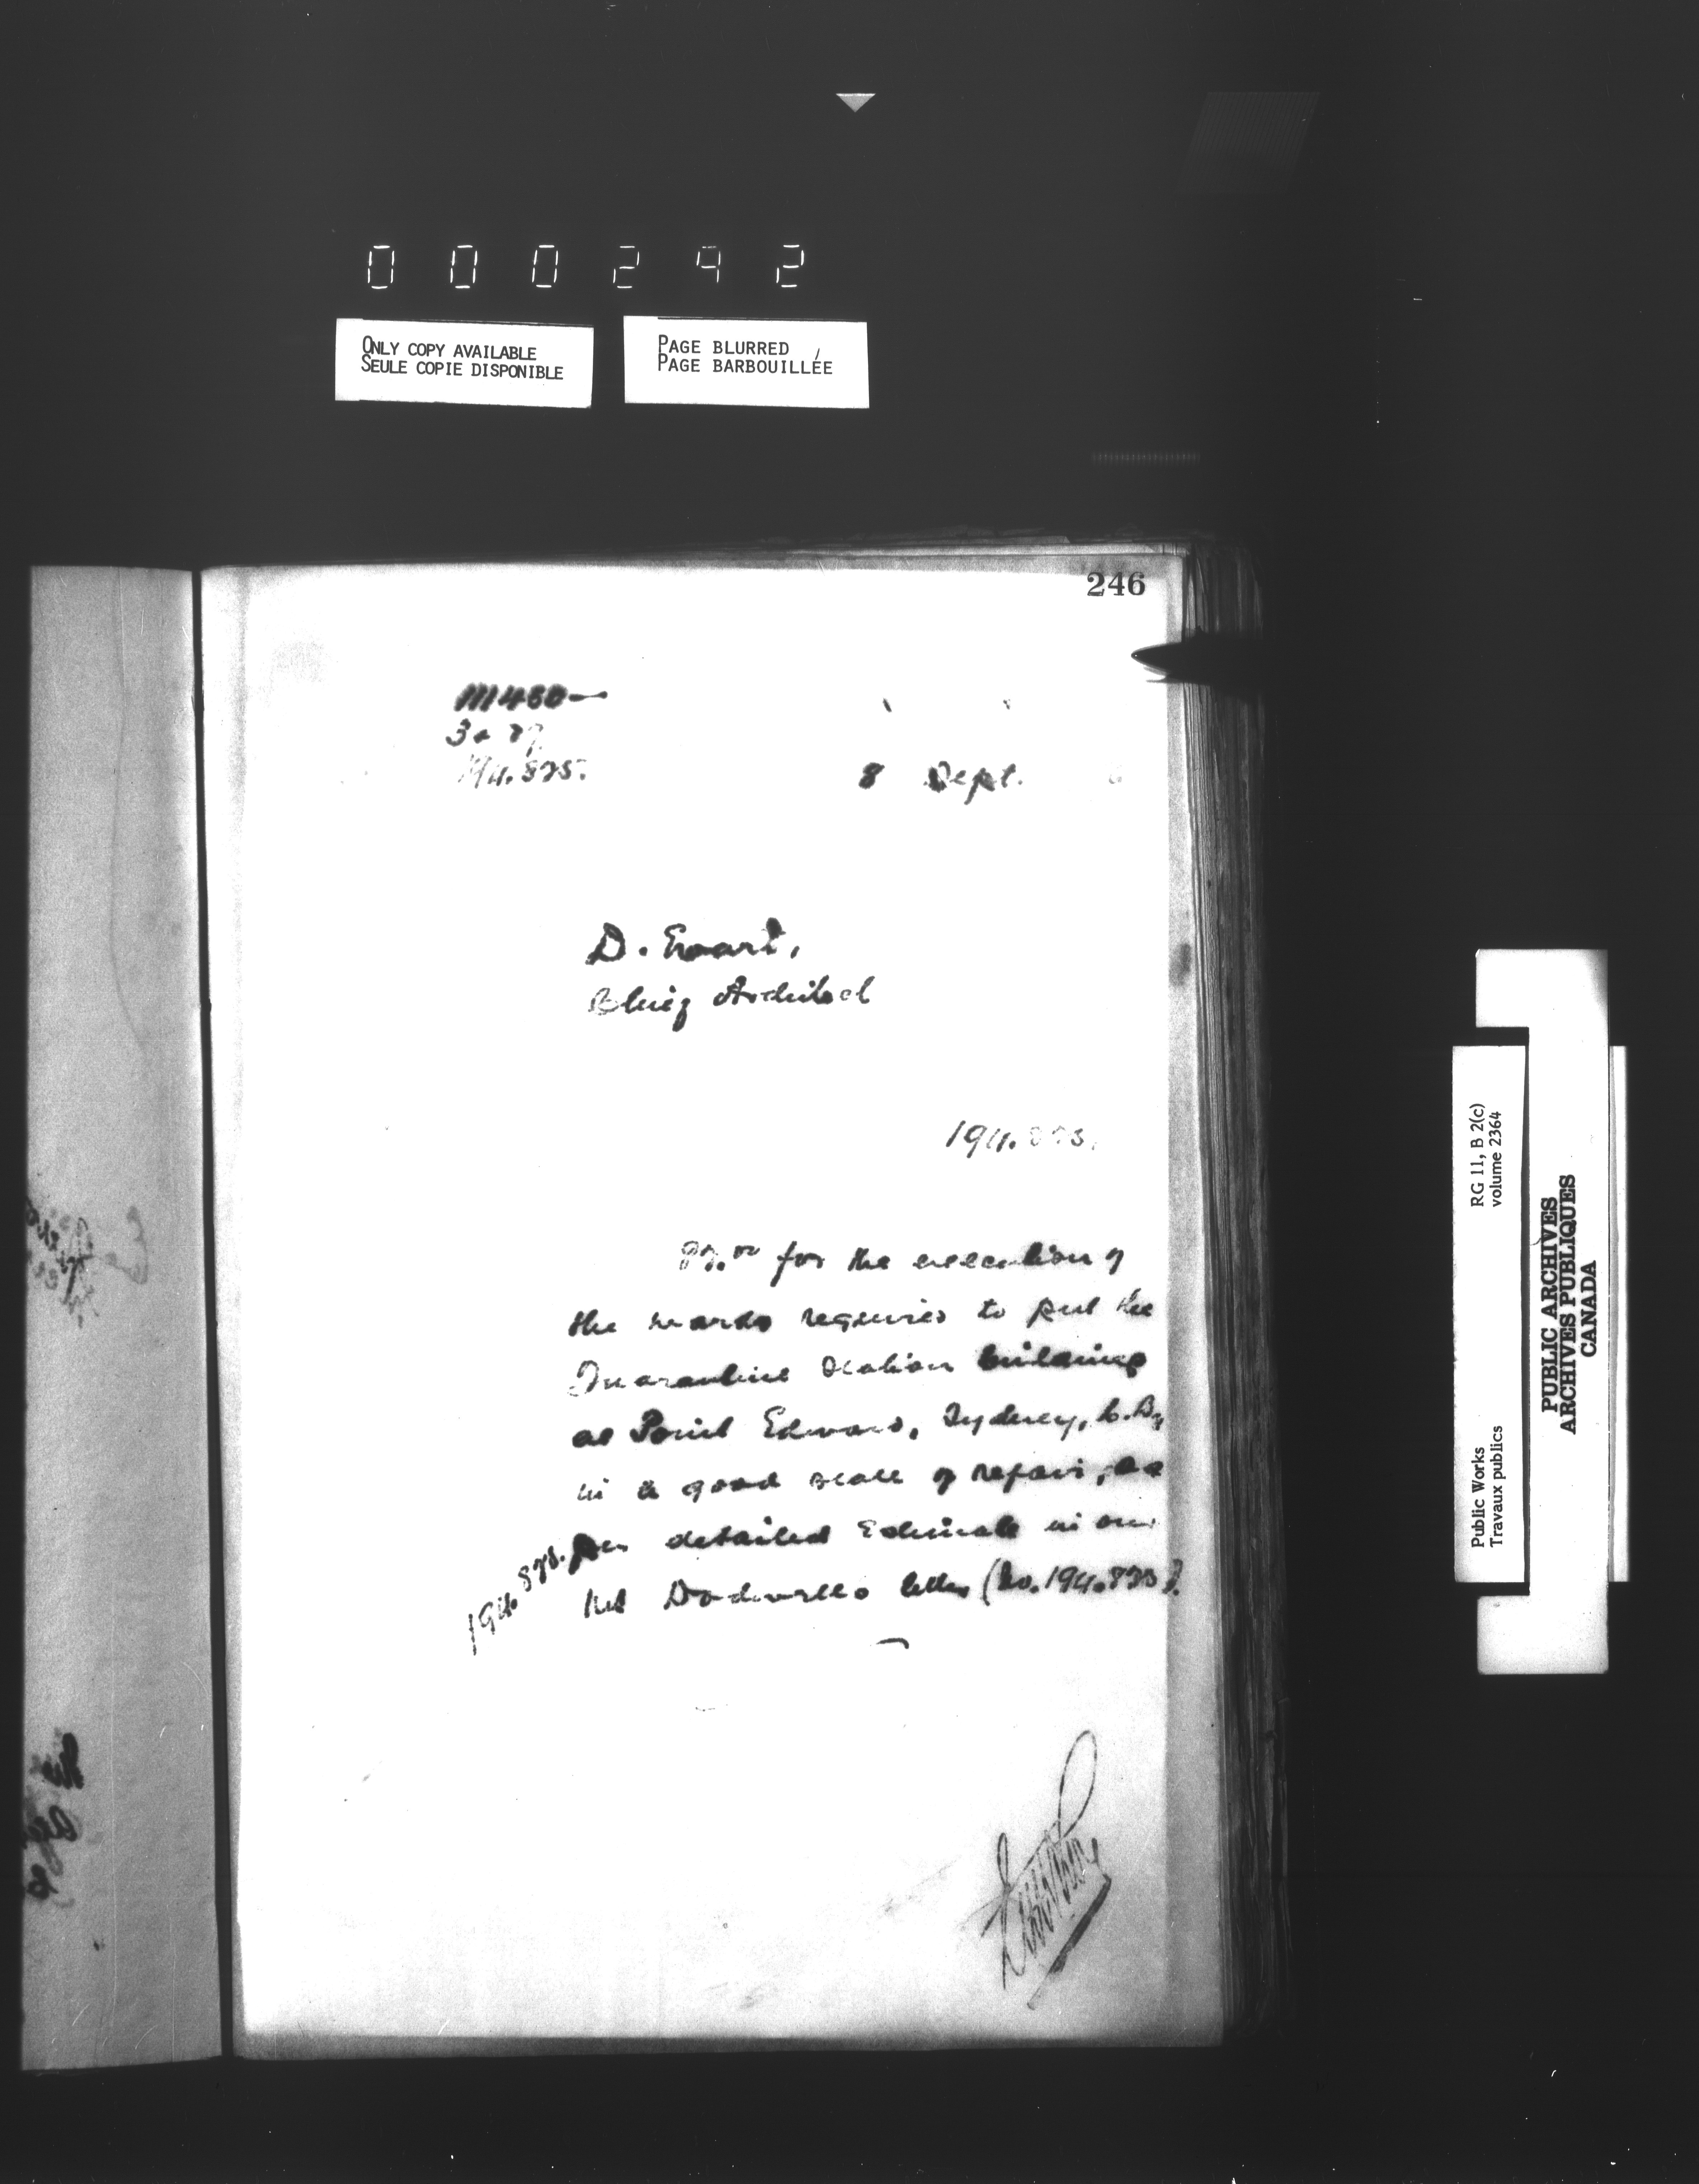 000292
ONLY COPY AVAILABLE
SEULE COPIE DISPONIBLE
PAGE BLURRED
PAGE BARBOUILLÉE
246
8 Sept.
194.875.
D. Ewart,
Chief Architect
194.875.
for the execution of
the works required to put the
Quarantine Station buildings
at Point Edward, Sydney, C.B.,
in a good state of repair, as
per detailed Estimate in our
letter (No. 194.875).
194.875.
RG 11, B 2(c)
volume 2364
Public Works
Travaux publics
PUBLIC ARCHIVES
ARCHIVES PUBLIQUES
CANADA